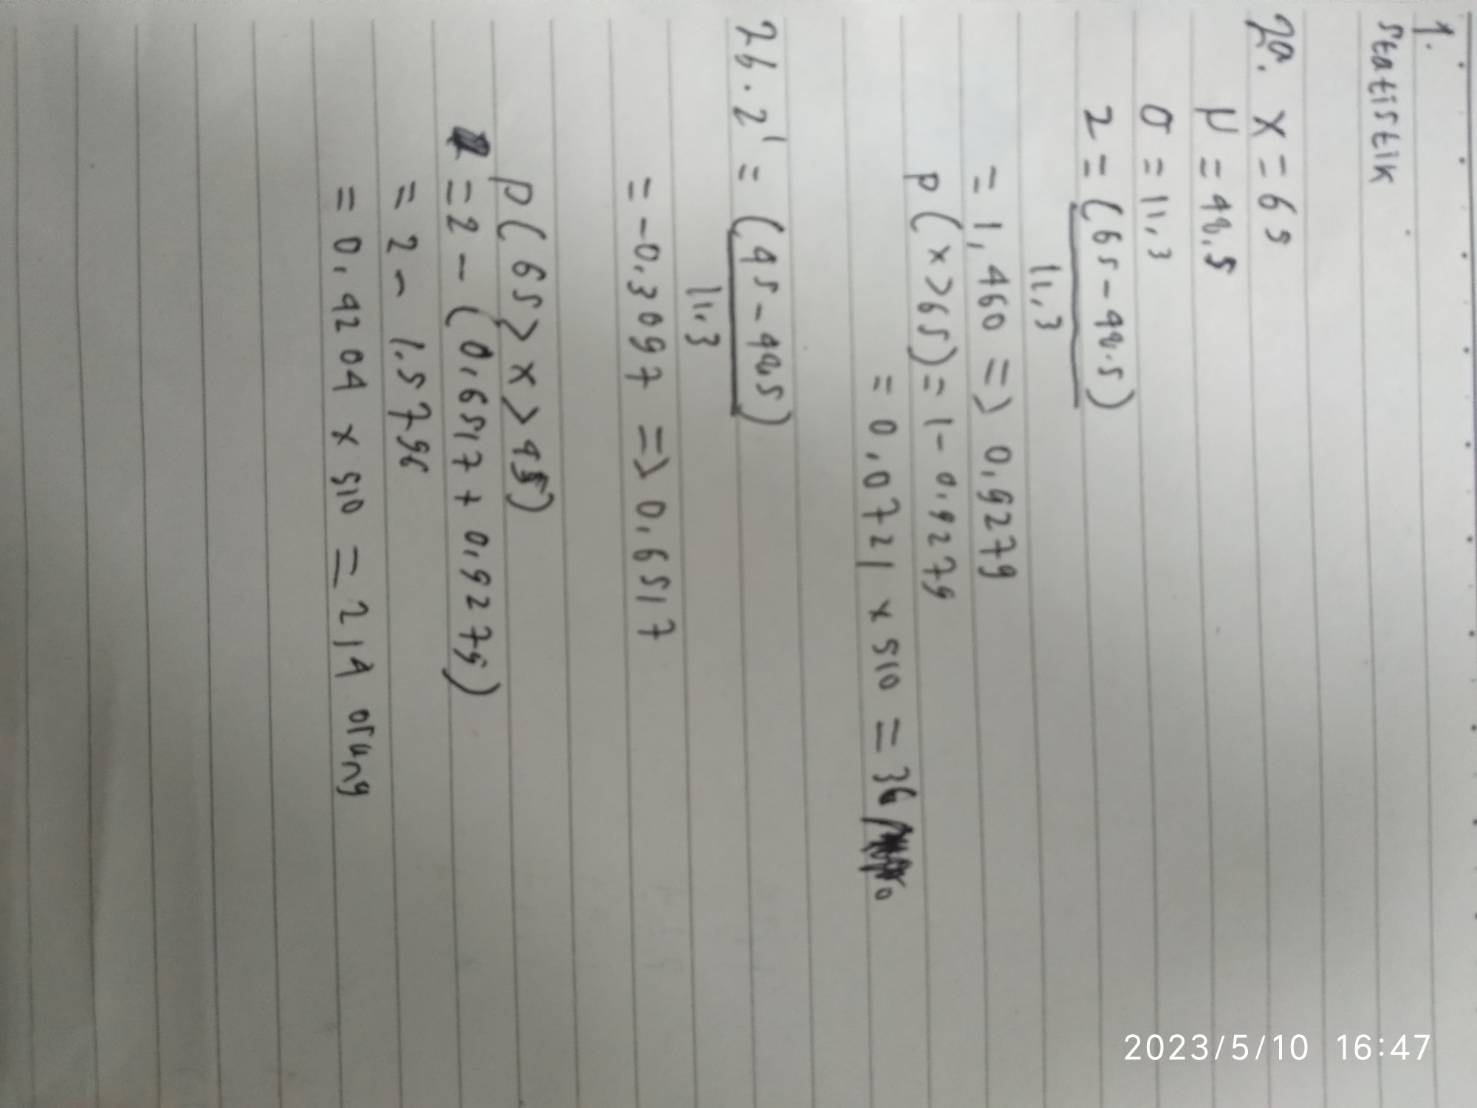 1.
Statistik
2a. x = 65
μ = 48,5
σ = 11,3
z = (65 - 48.5)
11,3
= 1,460 => 0,9279
P(x>65) = 1 - 0,9279
= 0,0721 x 510 = 36
2b. z' = (45 - 48,5)
11,3
= -0,3097 => 0,6517
P(65 > x > 45)
= 2 - (0,6517 + 0,9279)
= 2 - 1.5796
= 0,4204 x 510 = 214 orang
2023/5/10 16:47